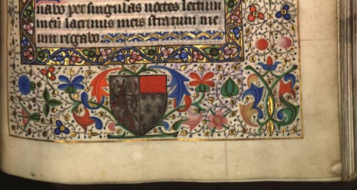 uabo per singulas noctes lectum
meū lacrimis meis stratum me
um rigabo.